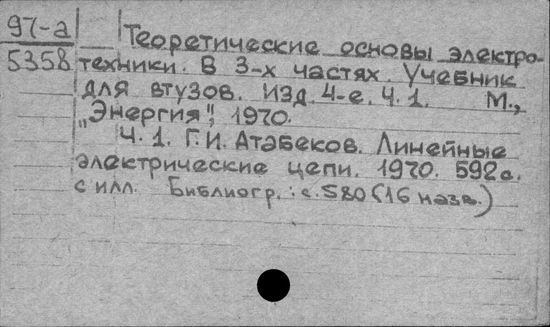 97-а
5358
Теоретические основы электро-
техники. В 3-х частях. Учебник
для втузов. Изд. 4-е. Ч. 1. М.,
„Энергия", 1970.
Ч. 1. Г.И. Атабеков. Линейные
электрические цепи. 1970. 592 с.
с илл. Библиогр.: с. 580 (16 назв.)